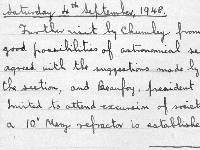 Saturday, 4th September, 1948.
Further visit by Chumley from
good possibilities of astronomical se
agreed with the suggestions made by
the section, and Beaufoy, president
invited to attend excursion of societ
a 10" Merz refractor is establishe